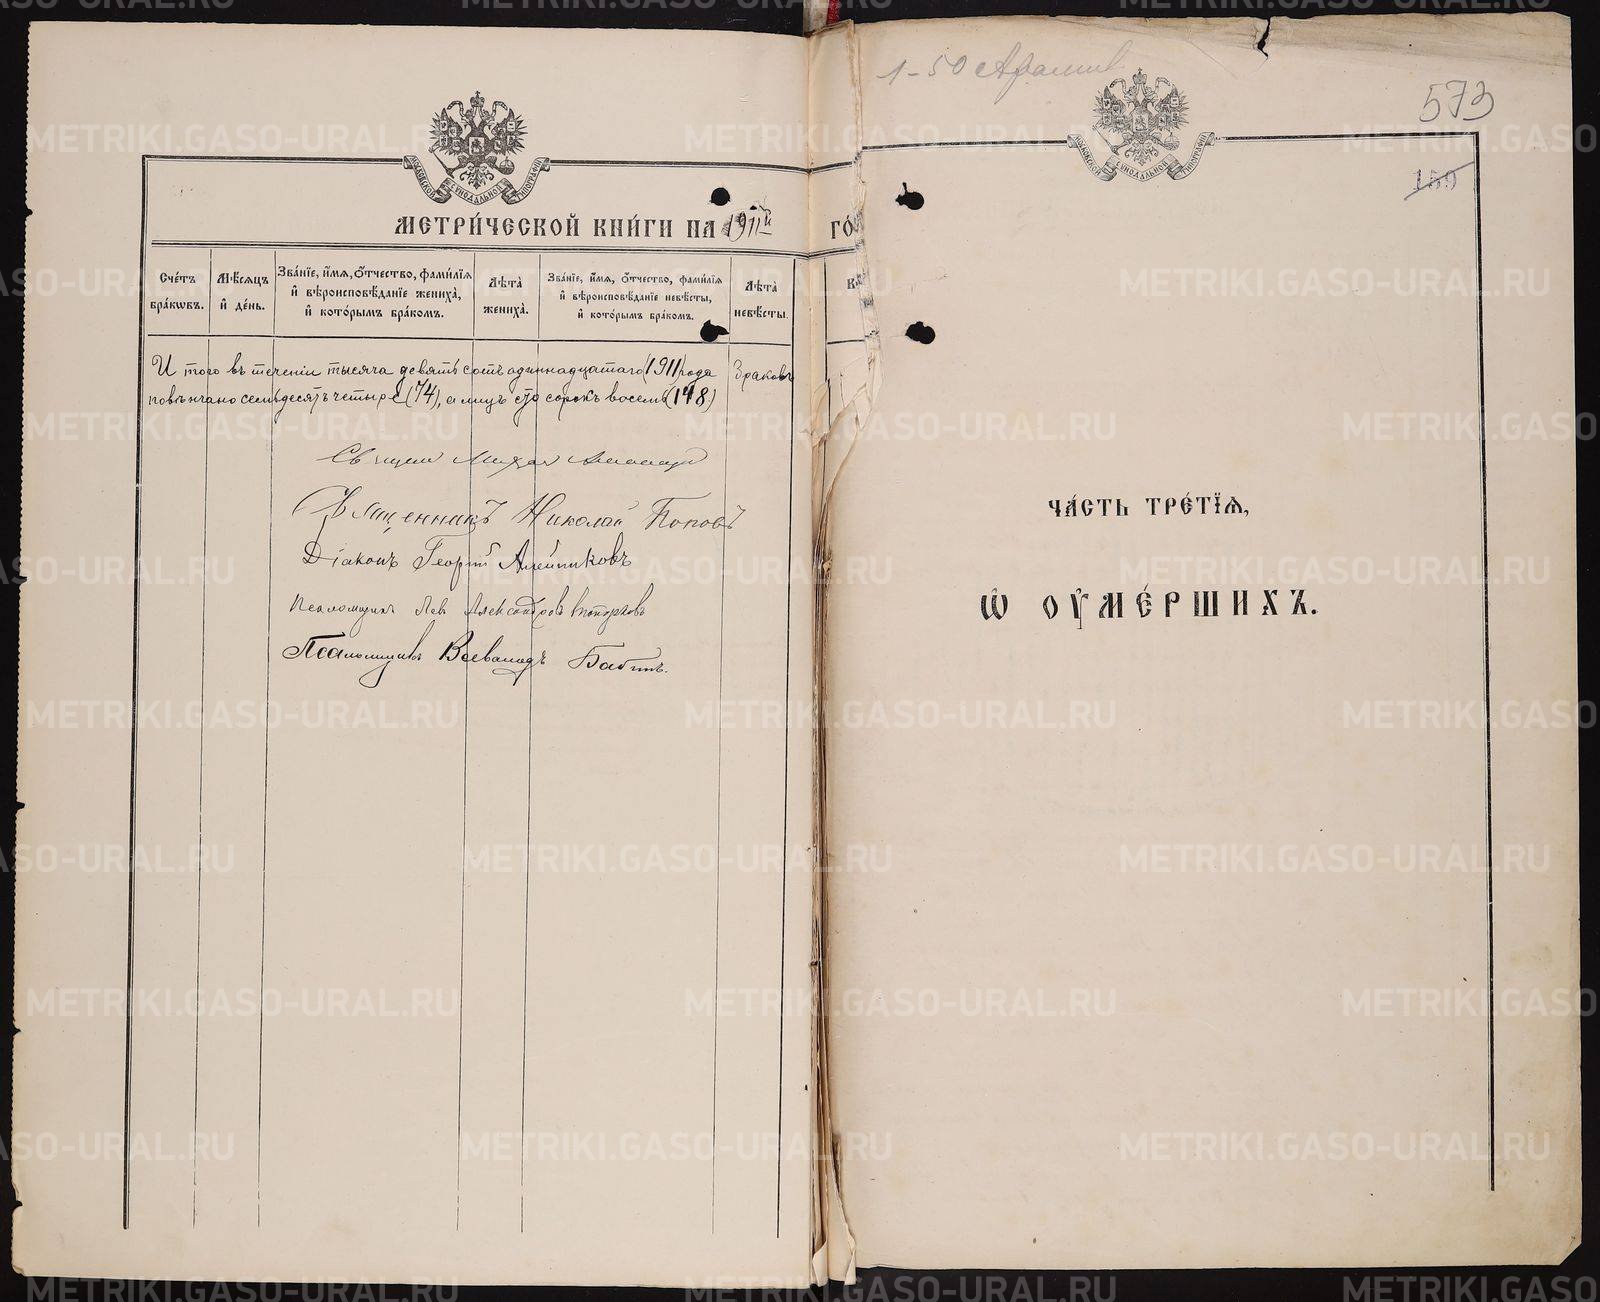 МОСКОВСКОЙ СѴНОДАЛЬНОЙ ТИПОГРАФІИ
МЕТРИ́ЧЕСКОЙ КНИ́ГИ НА 1911й
Сче́тъ бра́кѡвъ.
Мѣ́сѧцъ и҆ де́нь.
Зва́нїе, и҆́мѧ, ѻ҆́тчество, фами́лїѧ и҆ вѣроисповѣ́данїе жениха̀, и҆ кото́рымъ бра́комъ.
Лѣ́та жениха̀.
Зва́нїе, и҆́мѧ, ѻ҆́тчество, фами́лїѧ и҆ вѣроисповѣ́данїе невѣ́сты, и҆ кото́рымъ бра́комъ.
Лѣ́та невѣ́сты.
И того въ теченіи тысяча девятьсотъ одиннадцатаго (1911) года браковъ
повѣнчано семьдесятъ четыре (74), а лицъ сто сорокъ восемь (148)
Священникъ Николай Поповъ
Діаконъ Георгій Алейниковъ
Псаломщикъ Лев Александровъ
Псаломщикъ Всеволодъ Бабинъ.
ГО́
1-50 Арамил
573
159
МОСКОВСКОЙ СѴНОДАЛЬНОЙ ТИПОГРАФІИ
ЧА́СТЬ ТРЕ́ТЇѦ,
Ѽ ОУ҆МЕ́РШИХЪ.
METRIKI.GASO-URAL.RU